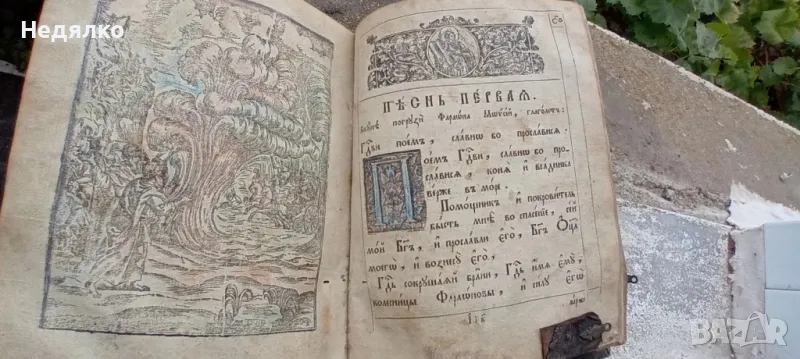 Недялко
ПѢСНЬ ПЕРВАЯ.
погрузи Фараѡна Мѡѷсій, глаголетъ:
Гдⷭ҇ви поемъ, славнѡ бо прославися.
Поемъ Гдⷭ҇ви, славнѡ бо про
славися, коня и всадника
верже въ море.
Помощникъ и покровитель
бысть мнѣ во спасенїе, сей
мой Бг҃ъ, и прославлю его̀, Бг҃ъ Оц҃а
моегѡ, и вознесу его̀.
Гдⷭ҇ь сокрушаяй брани, Гдⷭ҇ь имя ему̀,
колесницы Фараѡновы, и силу его̀
BAZAR